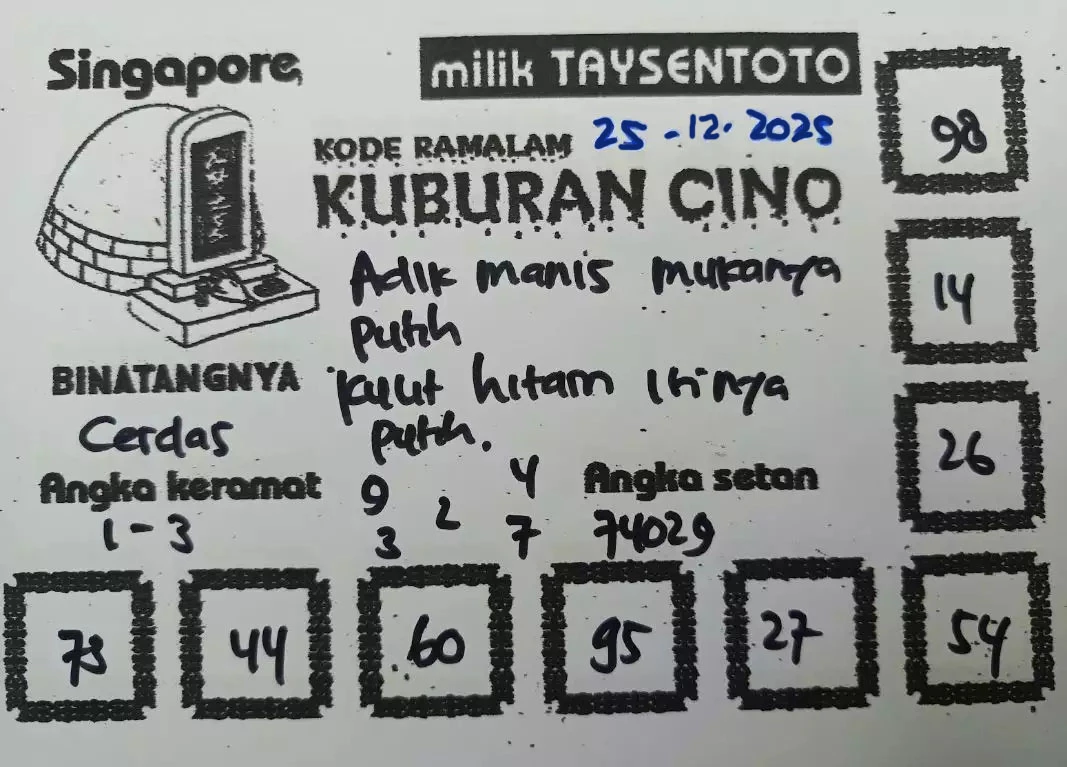 Singapore
milik TAYSENTOTO
KODE RAMALAM 25-12-2025
KUBURAN CINO
Adik manis mukanya
Putih
Kulit hitam Isinya
putih.
BINATANGNYA
Cerdas
Angka keramat
1-3
9 4
2
3 7
Angka setan
74029
98
14
26
73 44 60 95 27 54